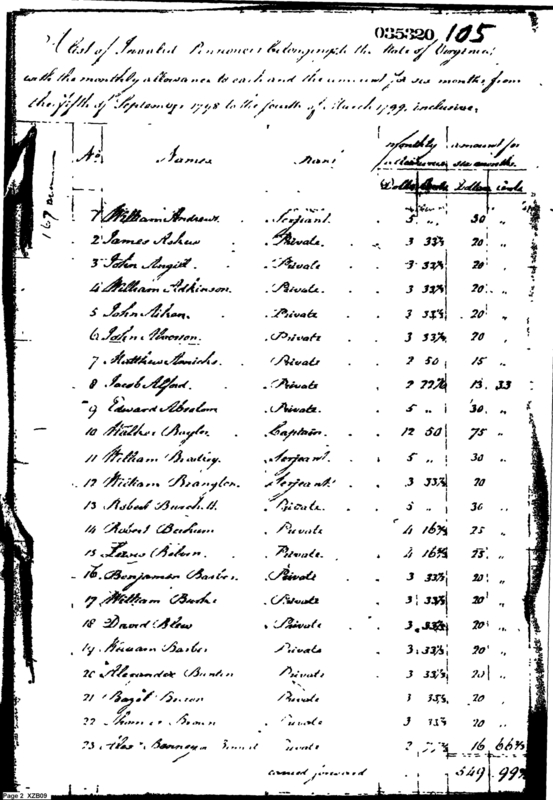 035320 105
A List of Invalid Pensioners belonging to the State of Virginia
with the monthly allowance to each and the amount for six months from
the fifth of September 1798 to the fourth of March 1799, inclusive.
monthly amount for
allowance six months.
No. Names Rank
Dolls Cents Dollars Cents
1 William Andrews. Serjeant 5 " 30 "
2 James Askew Private 3 33⅓ 20 "
3 John Angist Private 3 33⅓ 20
4 William Adkinson. Private 3 33⅓ 20 "
5 John Aikan. Private 3 33⅓ 20 "
6 John Private 3 33⅓ 20
7 Matthew Private 2 50 15 "
8 Jacob Alford. Private 2 13 33
9 Edward Absolom Private 5 " 30 "
10 Walker Baylor Captain. 12 50 75 "
11 William Serjeant. 5 " 30 "
12 William Serjeant 3 33⅓ 20
13 Private. 5 " 30 "
14 Robert Private 4 16⅔ 25 "
15 Private. 4 16⅔ 25 "
16 Benjamin Barber Private 3 33⅓ 20 "
17 William Burke Private 3 33⅓ 20 "
18 David Blew Private 3 33⅓ 20 "
19 William Barber Private 3 33⅓ 20 "
20 Alexander Private 3 33⅓ 20 "
21 Private 3 33⅓ 20
22 Brown Private 3 33⅓ 20
23 Private 2 16 66⅔
carried forward 549 99
Page 2 XZB09